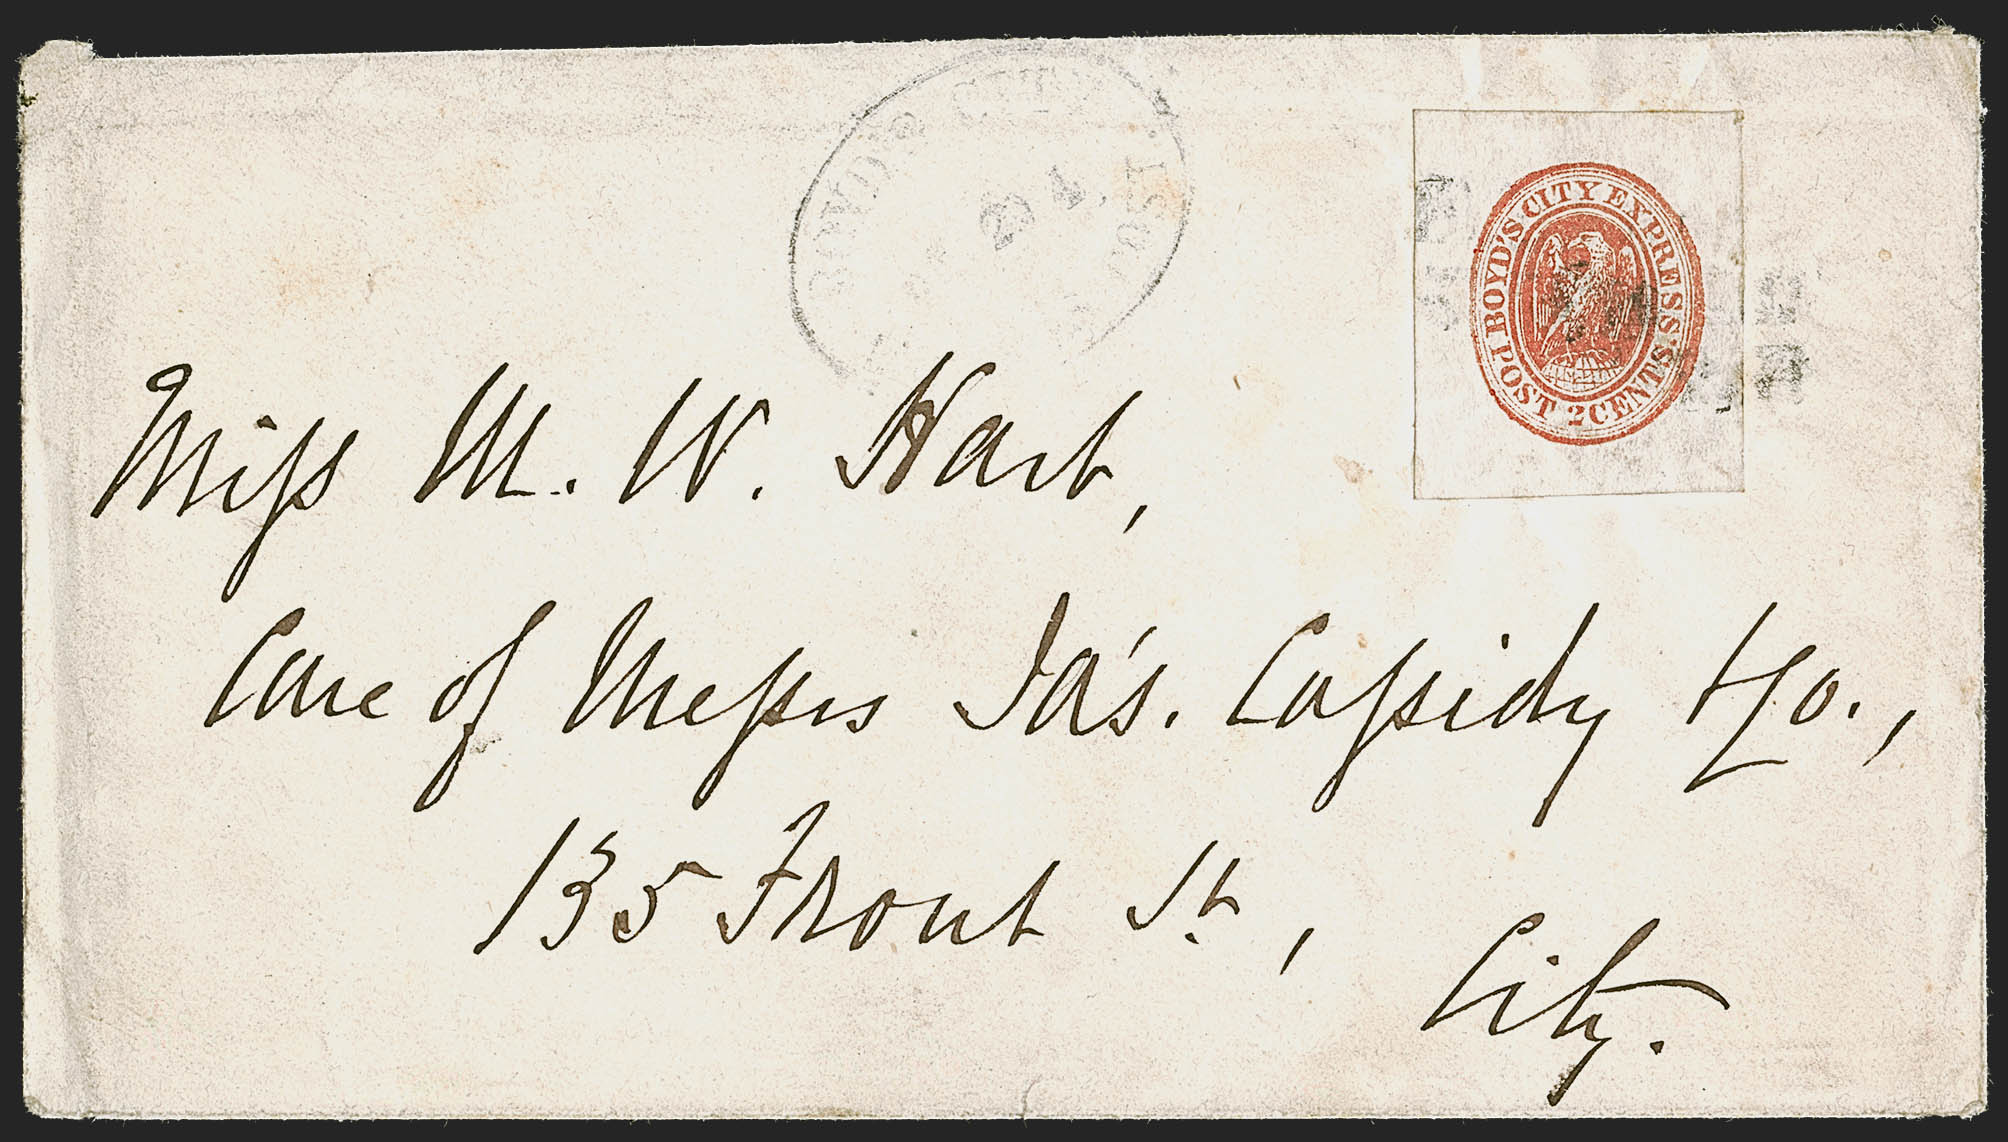 BOYD'S CITY POST
29
BOYD'S CITY EXPRESS
POST 2 CENTS.
Miss M. W. Hart,
Care of Messrs Ja's. Cassidy & Co.,
135 Front St.,
City.